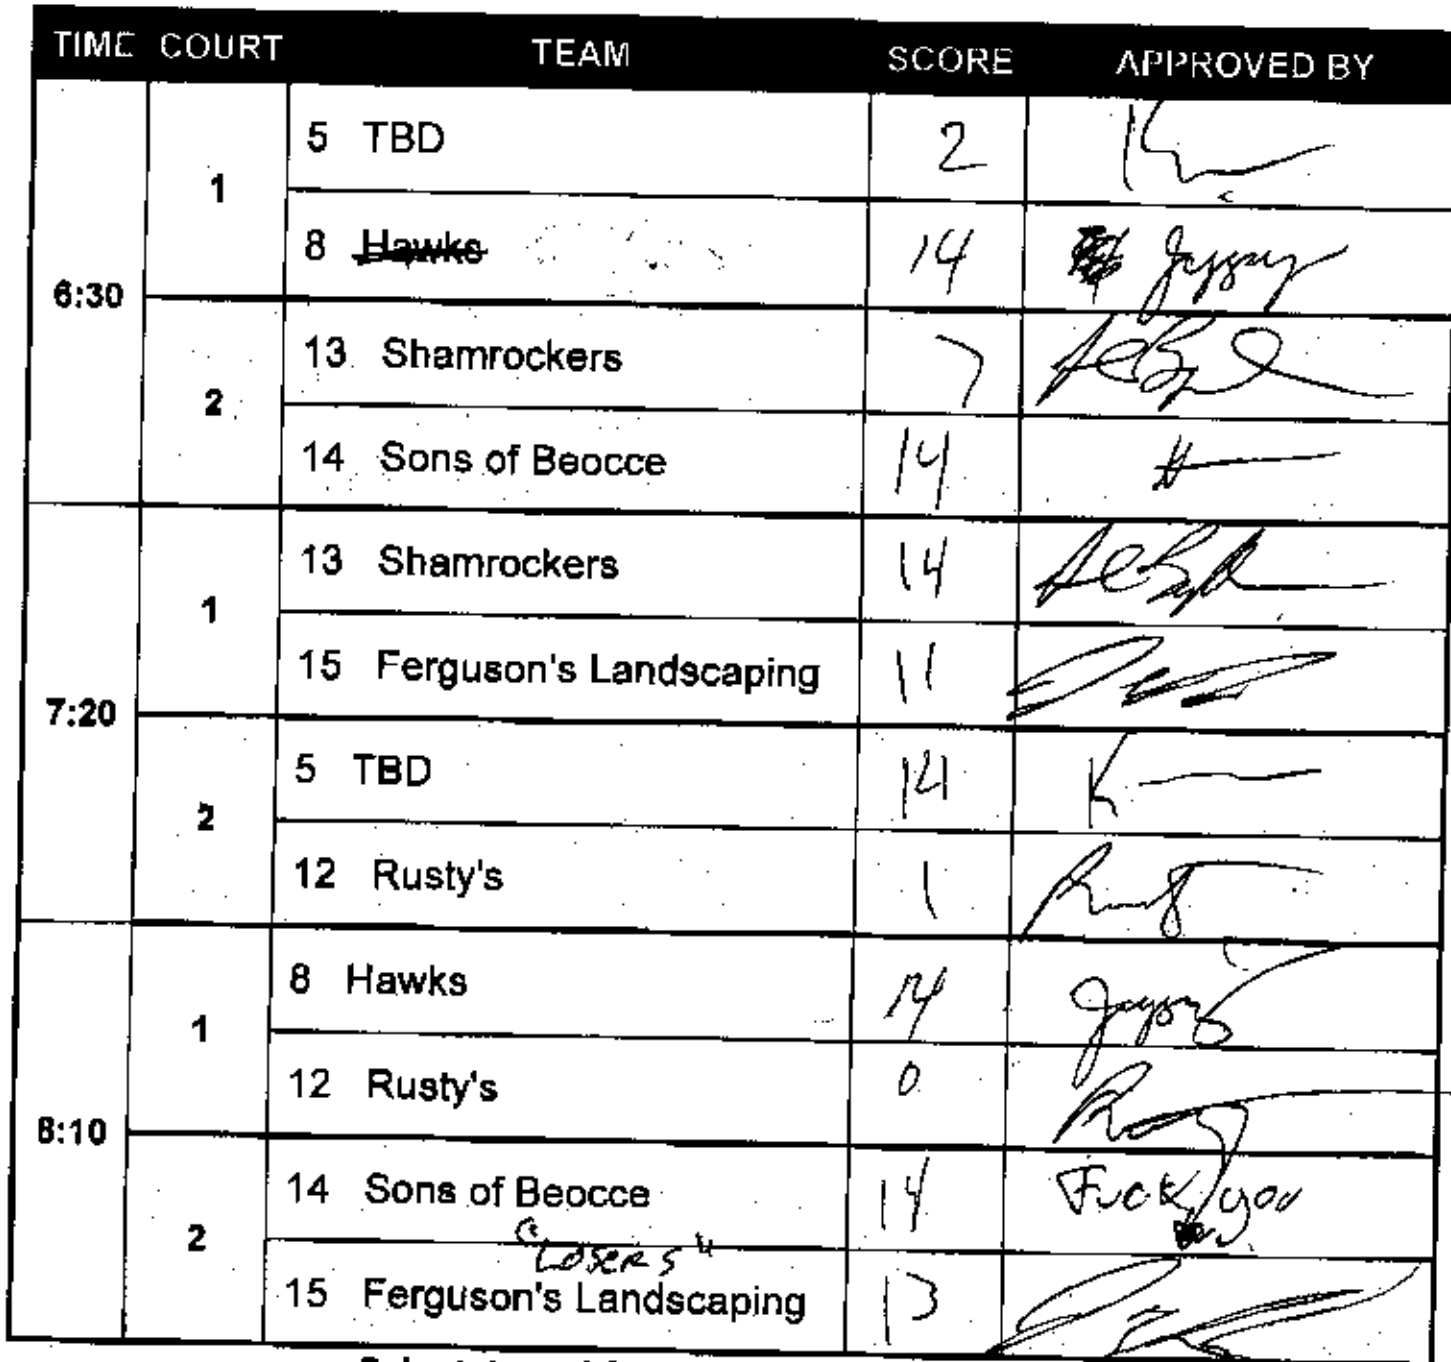 TIME COURT TEAM SCORE APPROVED BY
6:30
1
5 TBD 2
8 Hawks 14
2
13 Shamrockers 7
14 Sons of Beocce 14
7:20
1
13 Shamrockers 14
15 Ferguson's Landscaping 11
2
5 TBD 14
12 Rusty's 1
8:10
1
8 Hawks 14
12 Rusty's 0
2
14 Sons of Beocce 14 Fuck you
"LOSERS"
15 Ferguson's Landscaping 13